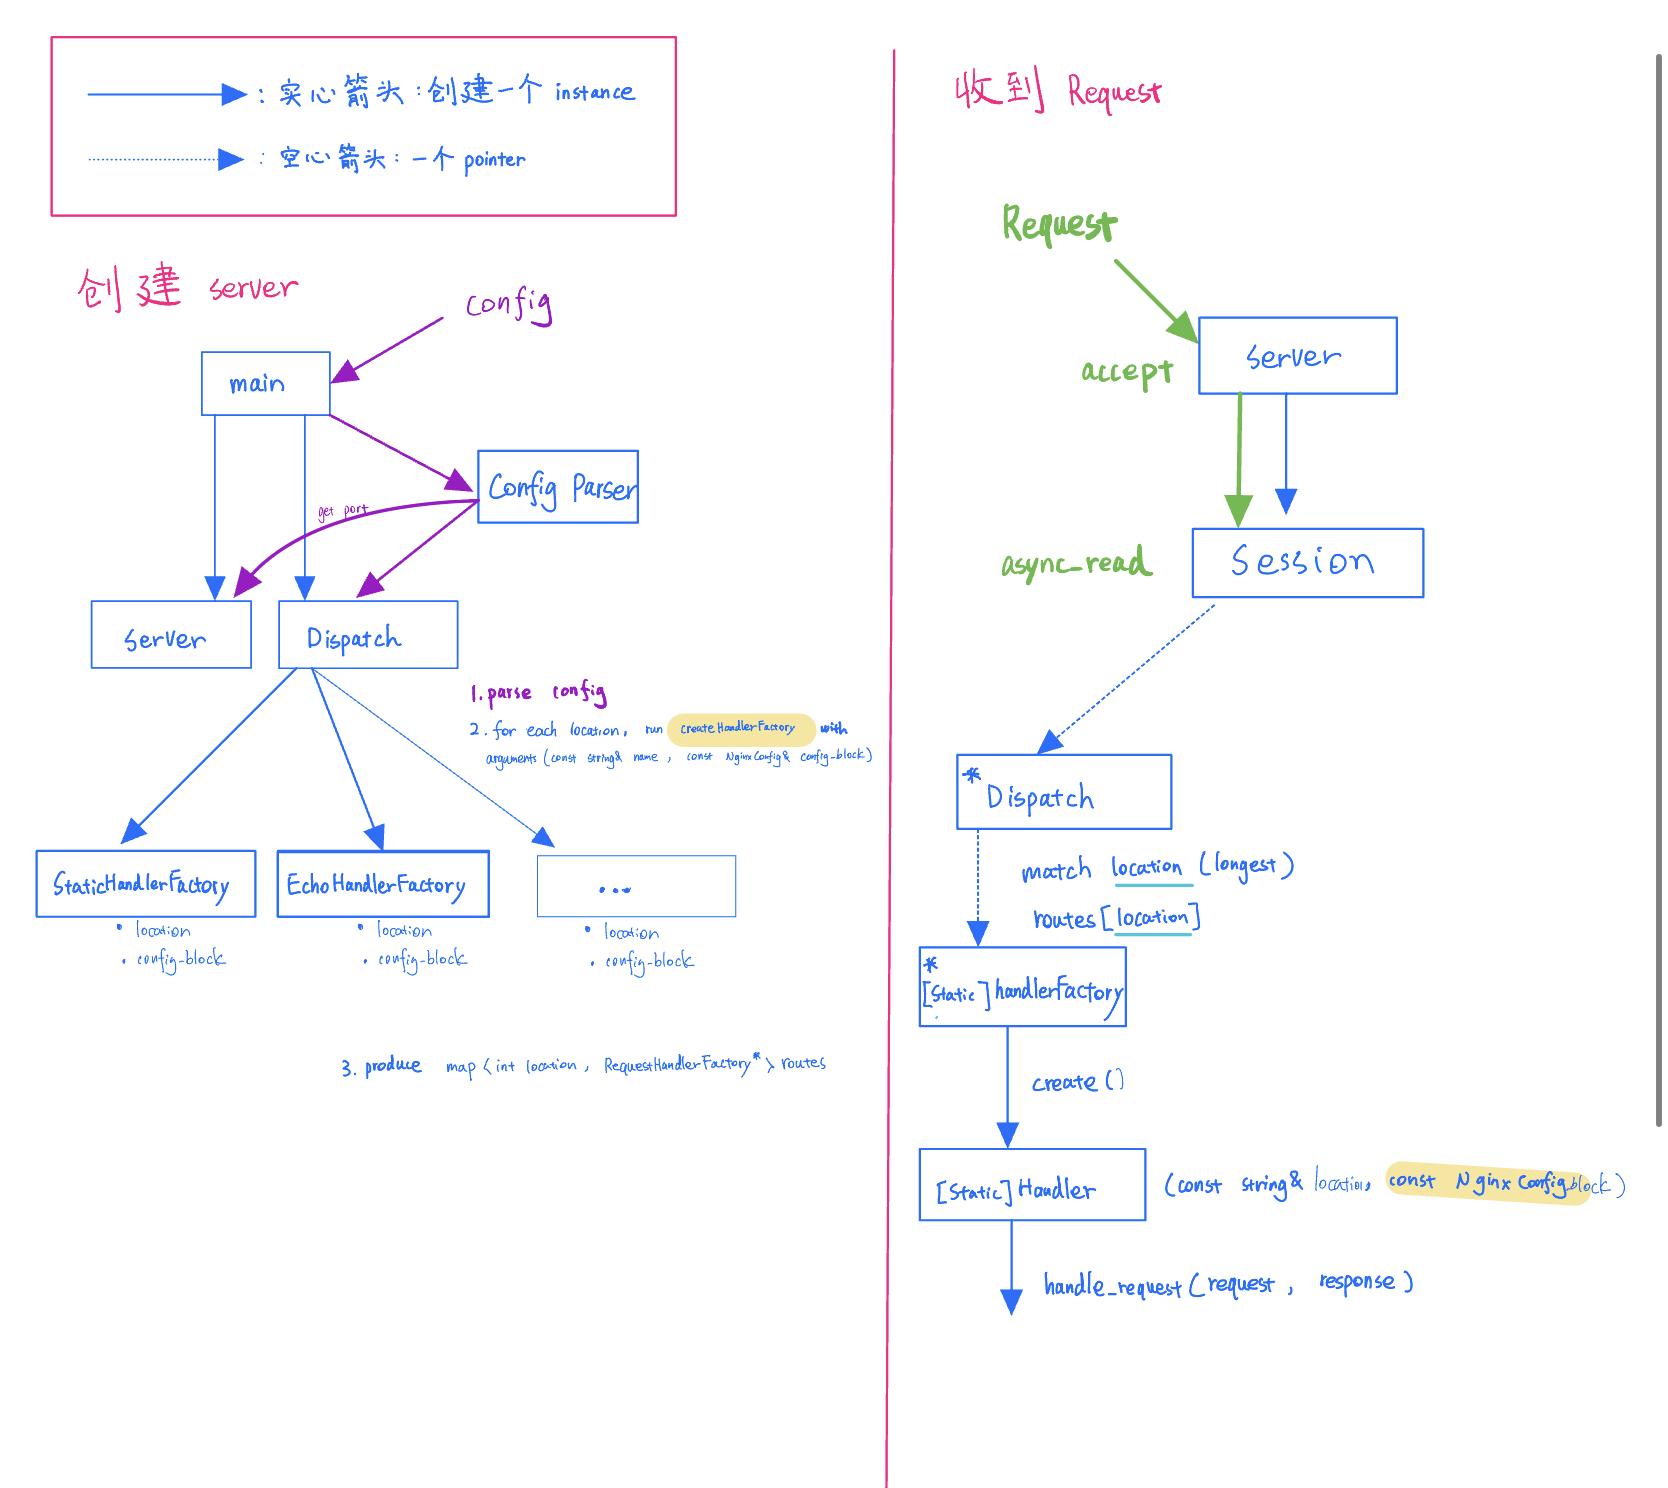 : 实心箭头:创建一个 instance
: 空心箭头:一个 pointer
创建 server
config
main
Config Parser
get port
server
Dispatch
1. parse config
2. for each location, run createHandlerFactory with
arguments (const string& name, const NginxConfig& config_block)
StaticHandlerFactory
• location
• config-block
EchoHandlerFactory
• location
• config-block
...
• location
• config-block
3. produce map <int location, RequestHandlerFactory*> routes
收到 Request
Request
server
accept
Session
async_read
* Dispatch
match location (longest)
routes[location]
*
[Static] handlerFactory
create()
[Static] Handler
(const string& location, const NginxConfig_block)
handle_request(request, response)